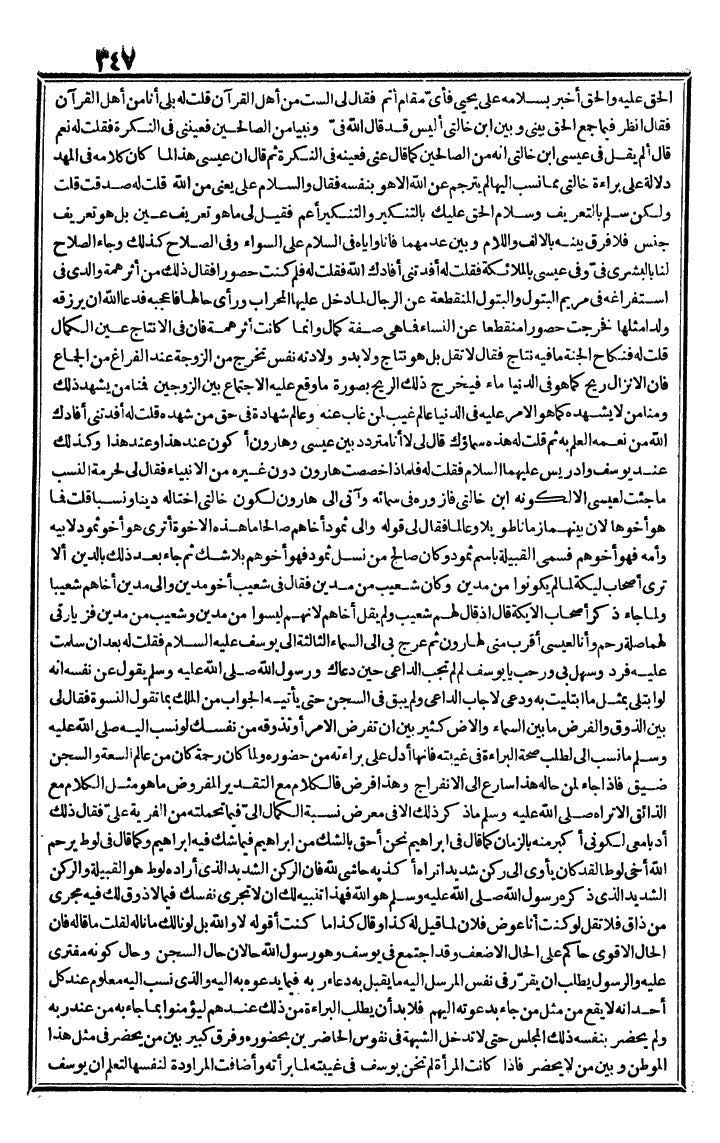 ٣٤٧
الحق عليه والحق أخبر بسلامه على يحيى فأىّ مقام أتم فقال لى ألست من أهل القرآن قلت له بلى أنا من أهل القرآن
فقال انظر فيما جمع الحق بينى وبين ابن خالتى أليس قد قال الله فىّ ونبيا من الصالحين فعيننى فى النكرة فقلت له نعم
قال ألم يقل فى عيسى ابن خالتى انه من الصالحين كما قال عنى فعينه فى النكرة ثم قال ان عيسى هذا لما كان كلامه فى المهد
دلالة على براءة خالتى مما نسب اليها لم يترجم عن الله الا هو بنفسه فقال والسلام علىّ يعنى من الله قلت له صدقت قلت
ولكن سلم بالتعريف وسلام الحق عليك بالتنكير والتنكير أعم فقيل لى ما هو تعريف عين بل هو تعريف
جنس فلا فرق بينه بالالف واللام وبين عدمهما فأنا واياه فى السلام على السواء وفى الصلاح كذلك وجاء الصلاح
لنا بالبشرى فىّ وفى عيسى بالملائكة فقلت له أفدتنى أفادك الله فقلت له فلم كنت حصورا فقال ذلك من أثر همة والدى فى
استفراغه فى مريم البتول والبتول المنقطعة عن الرجال لما دخل عليها المحراب ورأى حالها فأعجبه فدعا الله ان يرزقه
ولدا مثلها فخرجت حصورا منقطعا عن النساء فما هى صفة كمال وانما كانت أثر همة فان فى الانتاج عين الكمال
قلت له فنكاح الجنة ما فيه نتاج فقال لا تقل بل هو نتاج ولا بد و ولادته نفس تخرج من الزوجة عند الفراغ من الجماع
فان الانزال ريح كما هو فى الدنيا ماء فيخرج ذلك الريح بصورة ما وقع عليه الاجتماع بين الزوجين فمنا من يشهد ذلك
ومنا من لا يشهده كما هو الامر عليه فى الدنيا عالم غيب لمن غاب عنه وعالم شهادة فى حق من شهده قلت له أفدتنى أفادك
الله من نعمه العلم به ثم قلت له هذه سماؤك قال لى لا أنا متردد بين عيسى وهارون أكون عند هذا وعند هذا وكذلك
عند يوسف وادريس عليهما السلام فقلت له فلماذا خصصت هارون دون غيره من الانبياء فقال لى لحرمة النسب
ما جئت لعيسى الا لكونه ابن خالتى فأزوره فى سمائه وآتى الى هارون لكون خالتى أختا له دينا ونسبا قلت فما
هو أخوها لان بينهما زمانا طويلا وعالما فقال لى قوله والى ثمود أخاهم صالحا ما هذه الاخوة أترى هو أخو ثمود لابيه
وأمه فهو أخوهم فسمى القبيلة باسم ثمود وكان صالح من نسل ثمود فهو أخوهم بلا شك ثم جاء بعد ذلك بالدين ألا
ترى أصحاب ليكة لما لم يكونوا من مدين وكان شعيب من مدين فقال فى شعيب أخو مدين والى مدين أخاهم شعيبا
ولما جاء ذكر أصحاب الايكة قال اذ قال لهم شعيب ولم يقل أخاهم لانهم ليسوا من مدين وشعيب من مدين فزيارتى
لهما صلة رحم وأنا لعيسى أقرب منى لهارون ثم عرج بى الى السماء الثالثة الى يوسف عليه السلام فقلت له بعد ان سلمت
عليه فرد وسهل بى ورحب يا يوسف لم لم تجب الداعى حين دعاك ورسول الله صلى الله عليه وسلم يقول عن نفسه انه
لو ابتلى بمثل ما ابتليت به ودعى لاجاب الداعى ولم يبق فى السجن حتى يأتيه الجواب من الملك بما تقول النسوة فقال لى
بين الذوق والفرض ما بين السماء والارض كثير بين ان تفرض الامر أو تذوقه من نفسك لو نسب اليه صلى الله عليه
وسلم ما نسب الى لطلب صحة البراءة فى غيبته فانها أدل على براءته من حضوره ولما كان رحمة كان من عالم السعة والسجن
ضيق فاذا جاء لمن حاله هذا سارع الى الانفراج وهذا فرض فالكلام مع التقدير المفروض ما هو مثل الكلام مع
الذائق الا تراه صلى الله عليه وسلم ما ذكر ذلك الا فى معرض نسبة الكمال الىّ فيما تحملته من الفرية علىّ فقال ذلك
أدبا معى لكونى أكبر منه بالزمان كما قال فى ابراهيم نحن أحق بالشك من ابراهيم فيما شك فيه ابراهيم وكما قال فى لوط يرحم
الله أخى لوطا لقد كان يأوى الى ركن شديد أتراه أكذبه حاشى لله فان الركن الشديد الذى أراده لوط هو القبيلة والركن
الشديد الذى ذكره رسول الله صلى الله عليه وسلم هو الله فهذا تنبيه لك ان لا تجرى نفسك فيما لا ذوق لك فيه مجرى
من ذاق فلا تقل لو كنت أنا عوض فلان لما قيل له كذا وقال كذا ما كنت أقوله لا والله بل لو نالك ما ناله لقلت ما قاله فان
الحال الاقوى حاكم على الحال الاضعف وقد اجتمع فى يوسف وهو رسول الله حالان حال السجن وحال كونه مفترى
عليه والرسول يطلب ان يقرّر فى نفس المرسل اليه ما يقبل به دعاء ربه فيما يدعوه به اليه والذى نسب اليه معلوم عند كل
أحد انه لا يقع من مثل من جاء بدعوته اليهم فلا بد أن يطلب البراءة من ذلك عندهم ليؤمنوا بما جاء به من عند ربه
ولم يحضر بنفسه ذلك المجلس حتى لا تدخل الشبهة فى نفوس الحاضرين بحضوره وفرق كبير بين من يحضر فى مثل هذا
الموطن وبين من لا يحضر فاذا كانت المرأة لم تخن يوسف فى غيبته لما برأته وأضافت المراودة لنفسها لتعلم ان يوسف